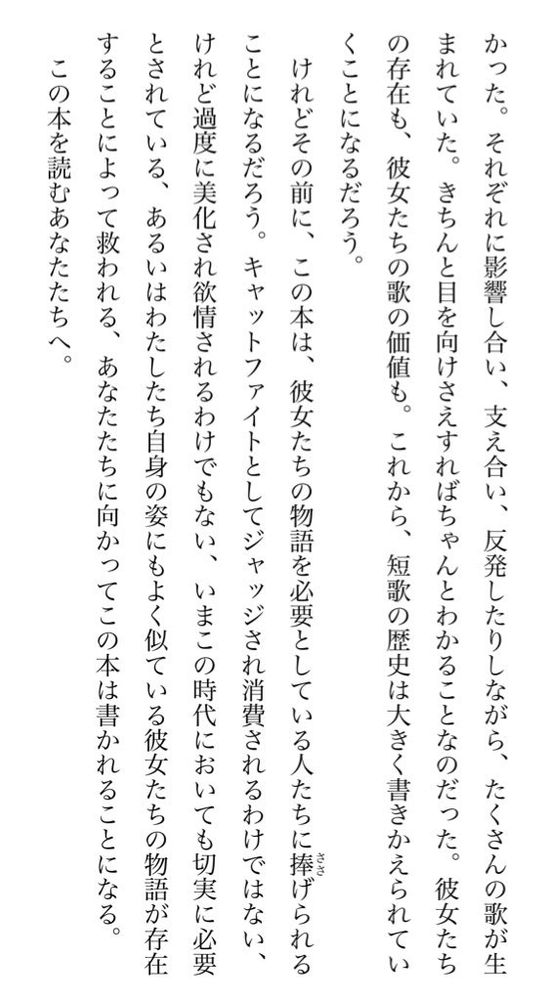 かった。それぞれに影響し合い、支え合い、反発したりしながら、たくさんの歌が生
まれていた。きちんと目を向けさえすればちゃんとわかることなのだった。彼女たち
の存在も、彼女たちの歌の価値も。これから、短歌の歴史は大きく書きかえられてい
くことになるだろう。
けれどその前に、この本は、彼女たちの物語を必要としている人たちに捧げられる
ささ
ことになるだろう。キャットファイトとしてジャッジされ消費されるわけではない、
けれど過度に美化され欲情されるわけでもない、いまこの時代においても切実に必要
とされている、あるいはわたしたち自身の姿にもよく似ている彼女たちの物語が存在
することによって救われる、あなたたちに向かってこの本は書かれることになる。
この本を読むあなたたちへ。